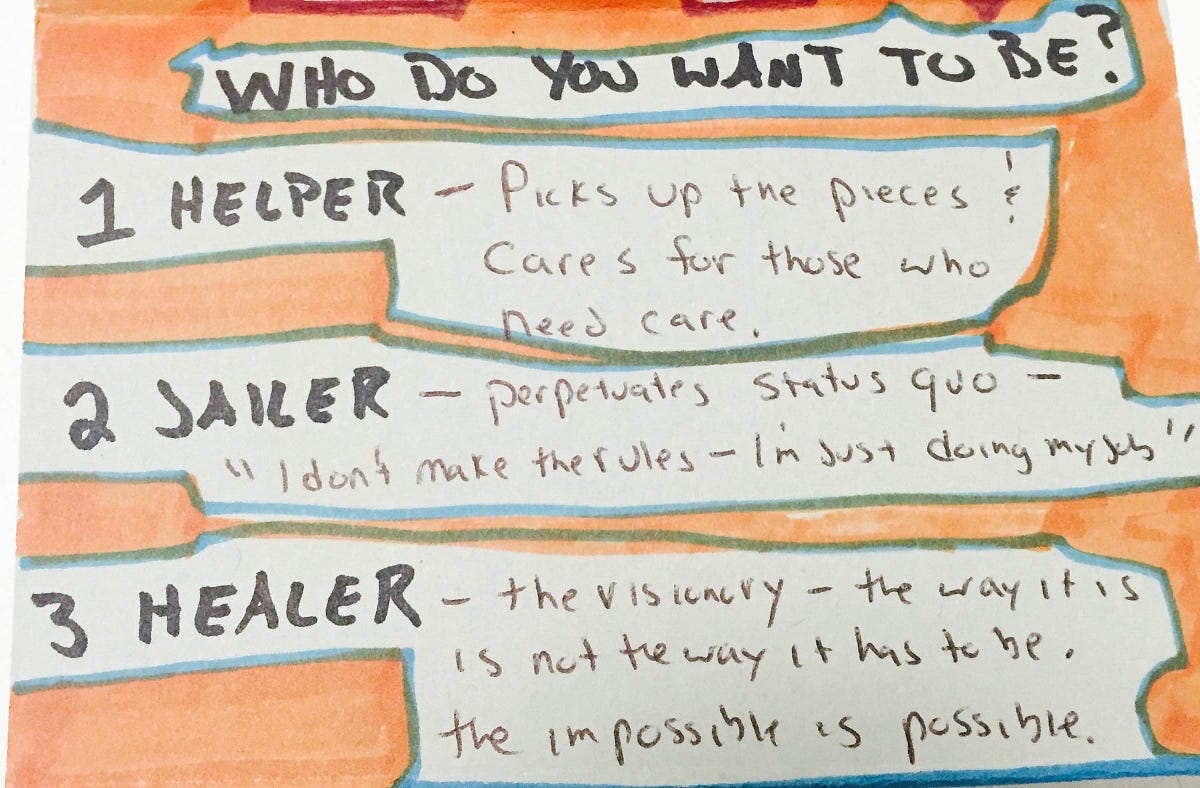 WHO DO YOU WANT TO BE?
1 HELPER - Picks up the pieces &
Cares for those who
need care.
2 JAILER - perpetuates status quo -
"I don't make the rules - I'm just doing my job"
3 HEALER - the visionary - the way it is
is not the way it has to be.
the impossible is possible.